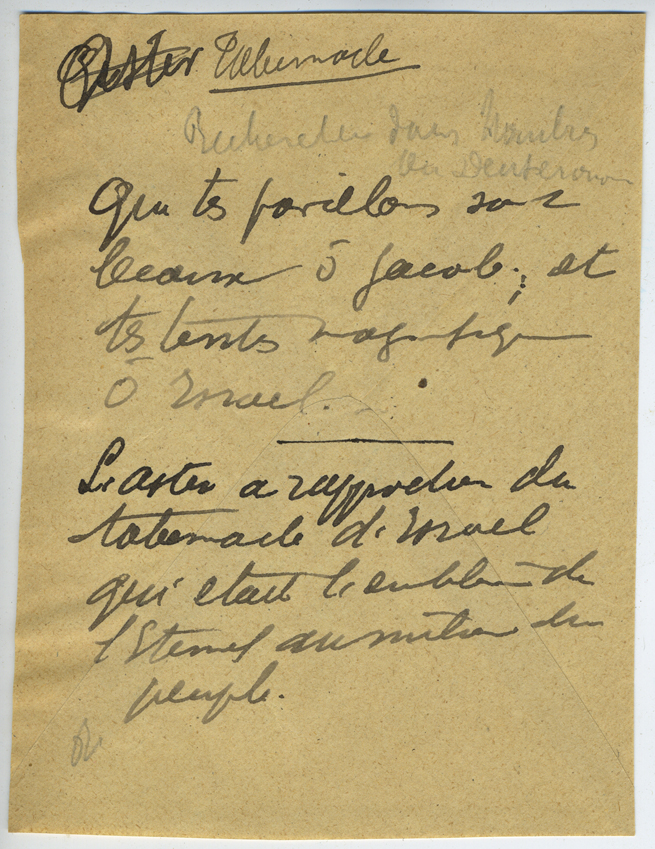 Aster Tabernacle
Rechercher dans Nombres
ou Deuteronome
Que tes pavillons sont
beaux ô Jacob; et
tes tentes magnifiques
ô Israel.
L'aster a rapprocher du
tabernacle d'Israel
qui etait l'embleme de
l'Eternel au milieu du
peuple.